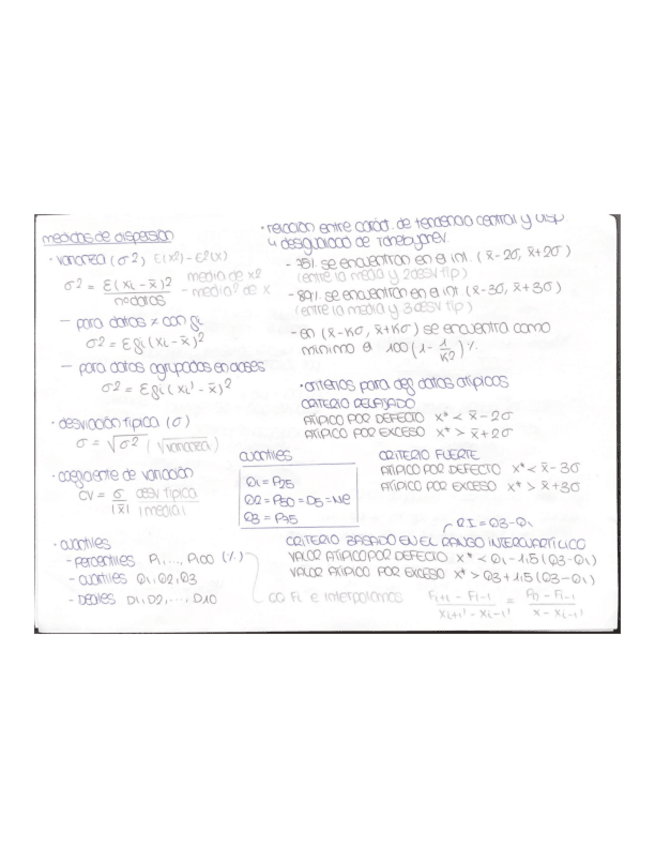 medidas de dispersión
· varianza (σ²) E(x²) - E²(x)
σ² = Σ(xi - x̄)² / nº datos
media de x²
- media² de x
— para datos x con fi
σ² = Σfi (xi - x̄)²
— para datos agrupados en clases
σ² = Σfi (xi' - x̄)²
· desviación típica (σ)
σ = √σ² (√varianza)
· coeficiente de variación
CV = σ / |x̄| desv típica / |media|
· cuantiles
- percentiles P1, ..., P100 (%)
- cuartiles Q1, Q2, Q3
- deciles D1, D2, ..., D10
cuartiles
Q1 = P25
Q2 = P50 = D5 = Me
Q3 = P75
· relación entre caráct. de tendencia central y disp
↳ desigualdad de Tchebychev.
- 75% se encuentran en el int. (x̄-2σ, x̄+2σ)
(entre la media y 2 desv tip)
- 89% se encuentran en el int. (x̄-3σ, x̄+3σ)
(entre la media y 3 desv tip)
- en (x̄-Kσ, x̄+Kσ) se encuentra como
mínimo el 100(1 - 1/K²)%.
· criterios para def datos atípicos
CRITERIO RELAJADO
ATÍPICO POR DEFECTO x* < x̄ - 2σ
ATÍPICO POR EXCESO x* > x̄ + 2σ
CRITERIO FUERTE
ATÍPICO POR DEFECTO x* < x̄ - 3σ
ATÍPICO POR EXCESO x* > x̄ + 3σ
RI = Q3 - Q1
CRITERIO BASADO EN EL RANGO INTERCUARTÍLICO
VALOR ATÍPICO POR DEFECTO x* < Q1 - 1,5(Q3-Q1)
VALOR ATÍPICO POR EXCESO x* > Q3 + 1,5(Q3-Q1)
Fi e interpolamos Fi+1 - Fi-1 / xi+1' - xi-1' = Pj - Fi-1 / x - xi-1'